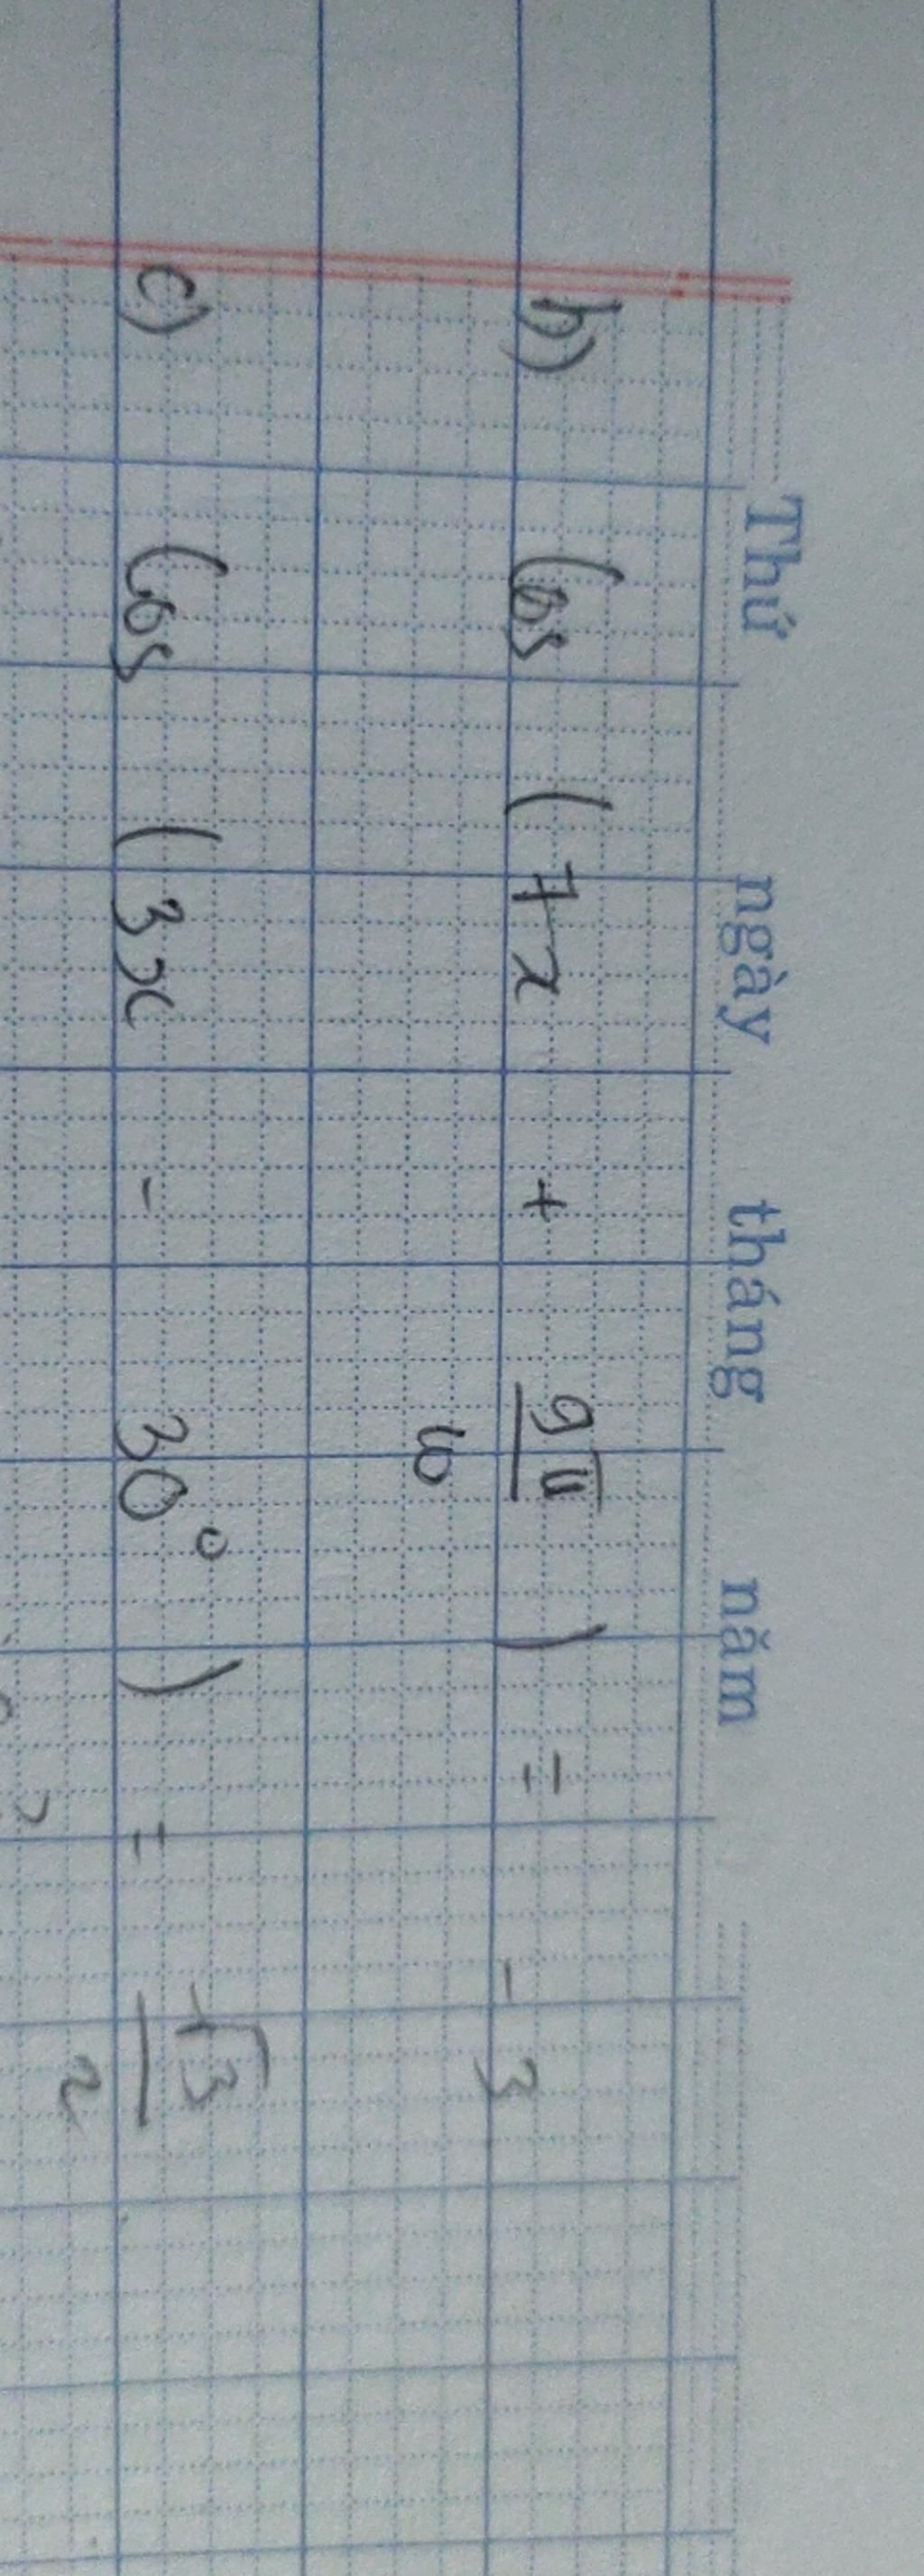 Thứ ngày tháng năm
b) Cos (7x + 9π/10) = -3
c) Cos (3x - 30°) = √3/2